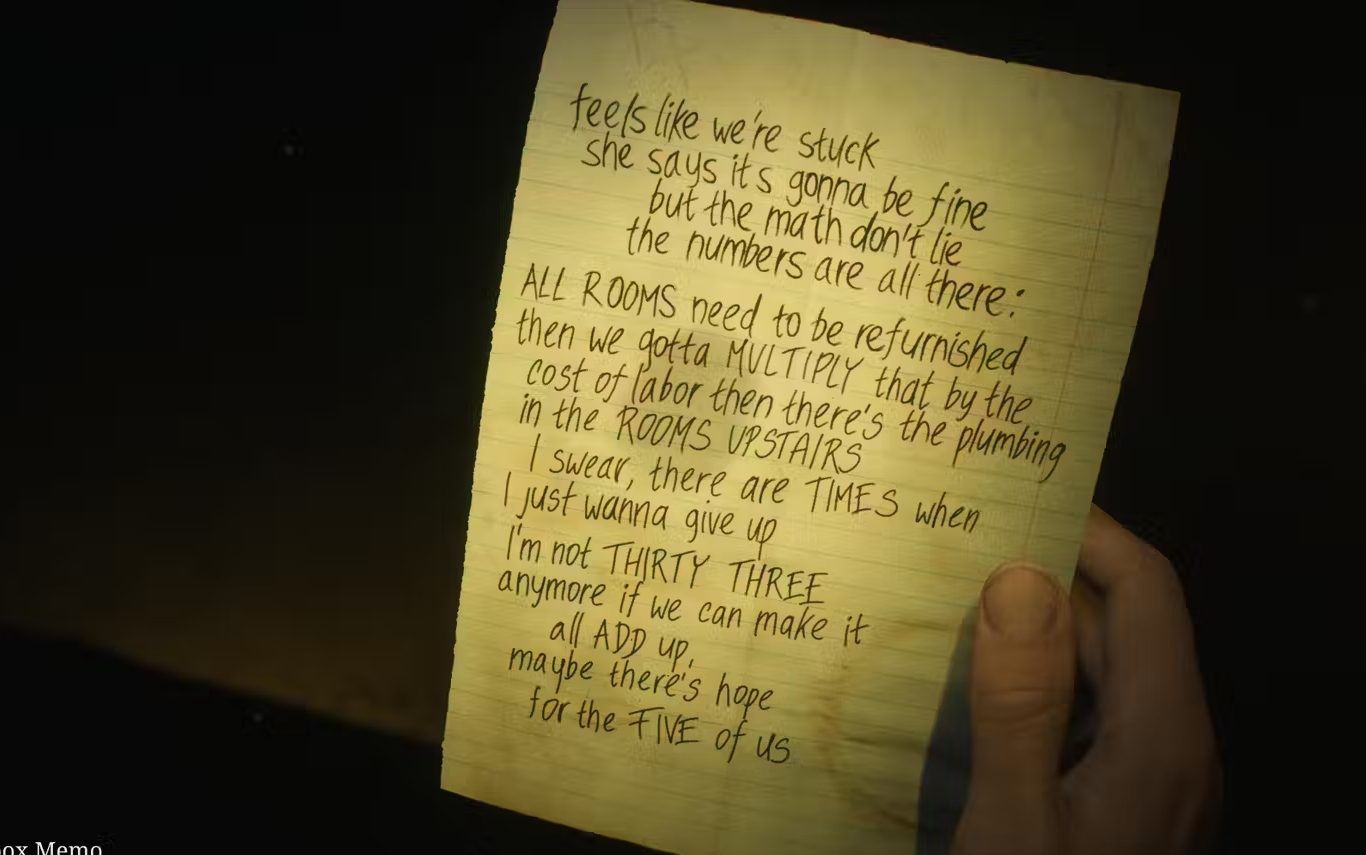 feels like we're stuck
she says it's gonna be fine
but the math don't lie
the numbers are all there:
ALL ROOMS need to be refurnished
then we gotta MULTIPLY that by the
cost of labor then there's the plumbing
in the ROOMS UPSTAIRS
I swear, there are TIMES when
I just wanna give up
I'm not THIRTY THREE
anymore if we can make it
all ADD up,
maybe there's hope
for the FIVE of us
ox Memo